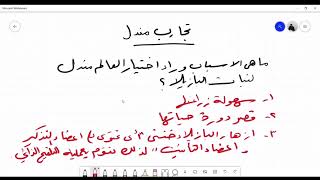 Microsoft Whiteboard
تجارب مندل
ما هي الاسباب وراء اختيار العالم مندل
لنبات البازيلا؟
١- سهولة زراعتها
٢- قصر دورة حياتها
٣- ازهار البازيلا خنثى "أي تحتوي على اعضاء التذكير
واعضاء التأنيث" لذلك تقوم بعملية التلقيح الذاتي